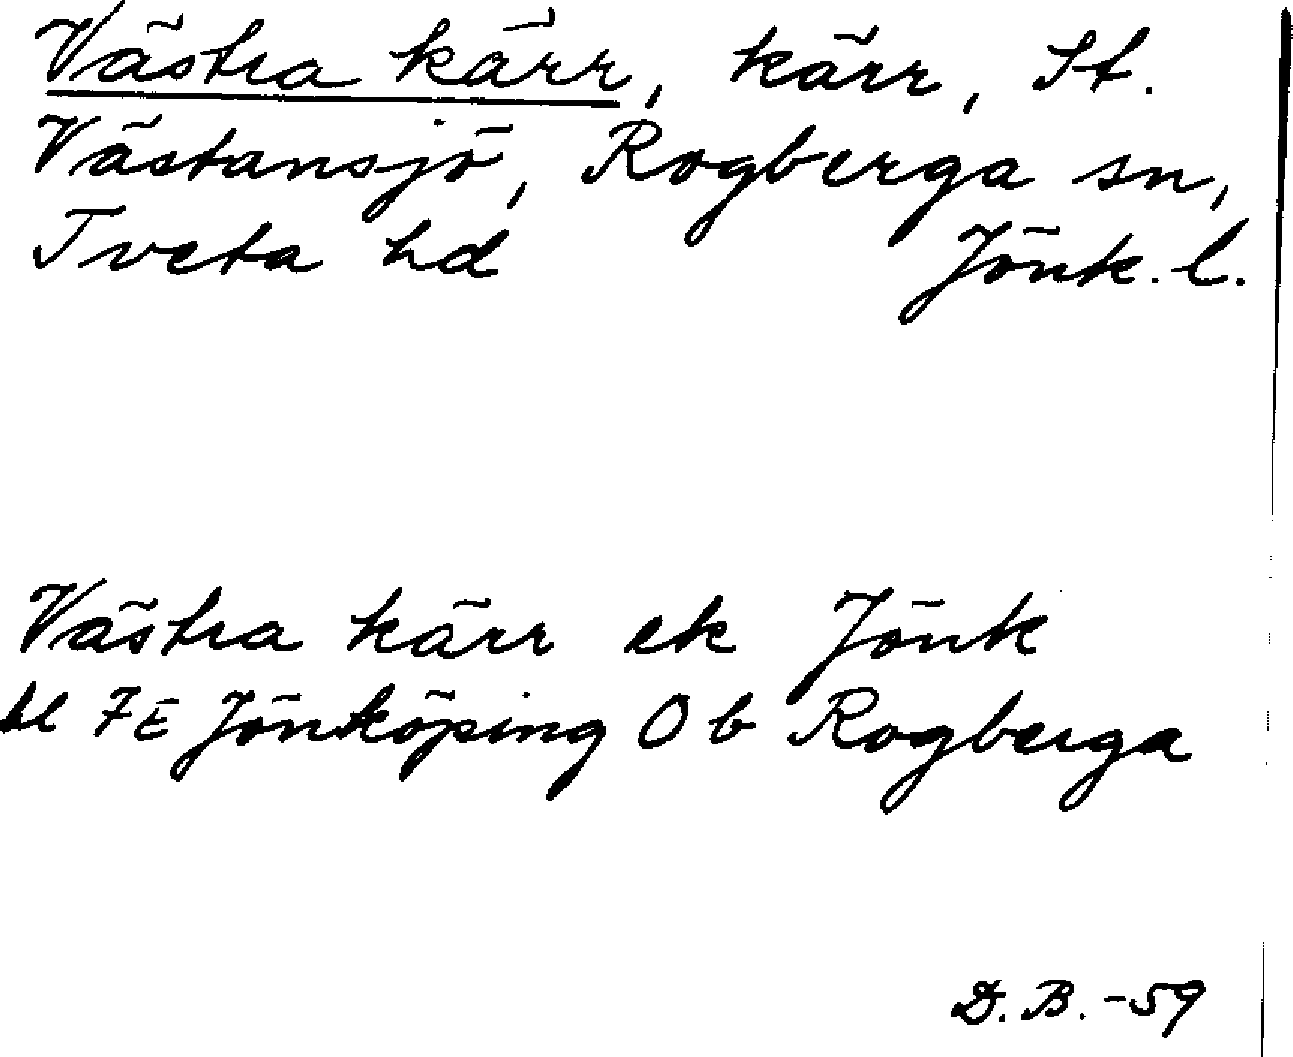 Västra kärr, kärr, St.
Västansjö, Rogberga sn,
Tveta hd Jönk. l.
Västra kärr ek Jönk
bl 7E Jönköping O b Rogberga
D. B. -59